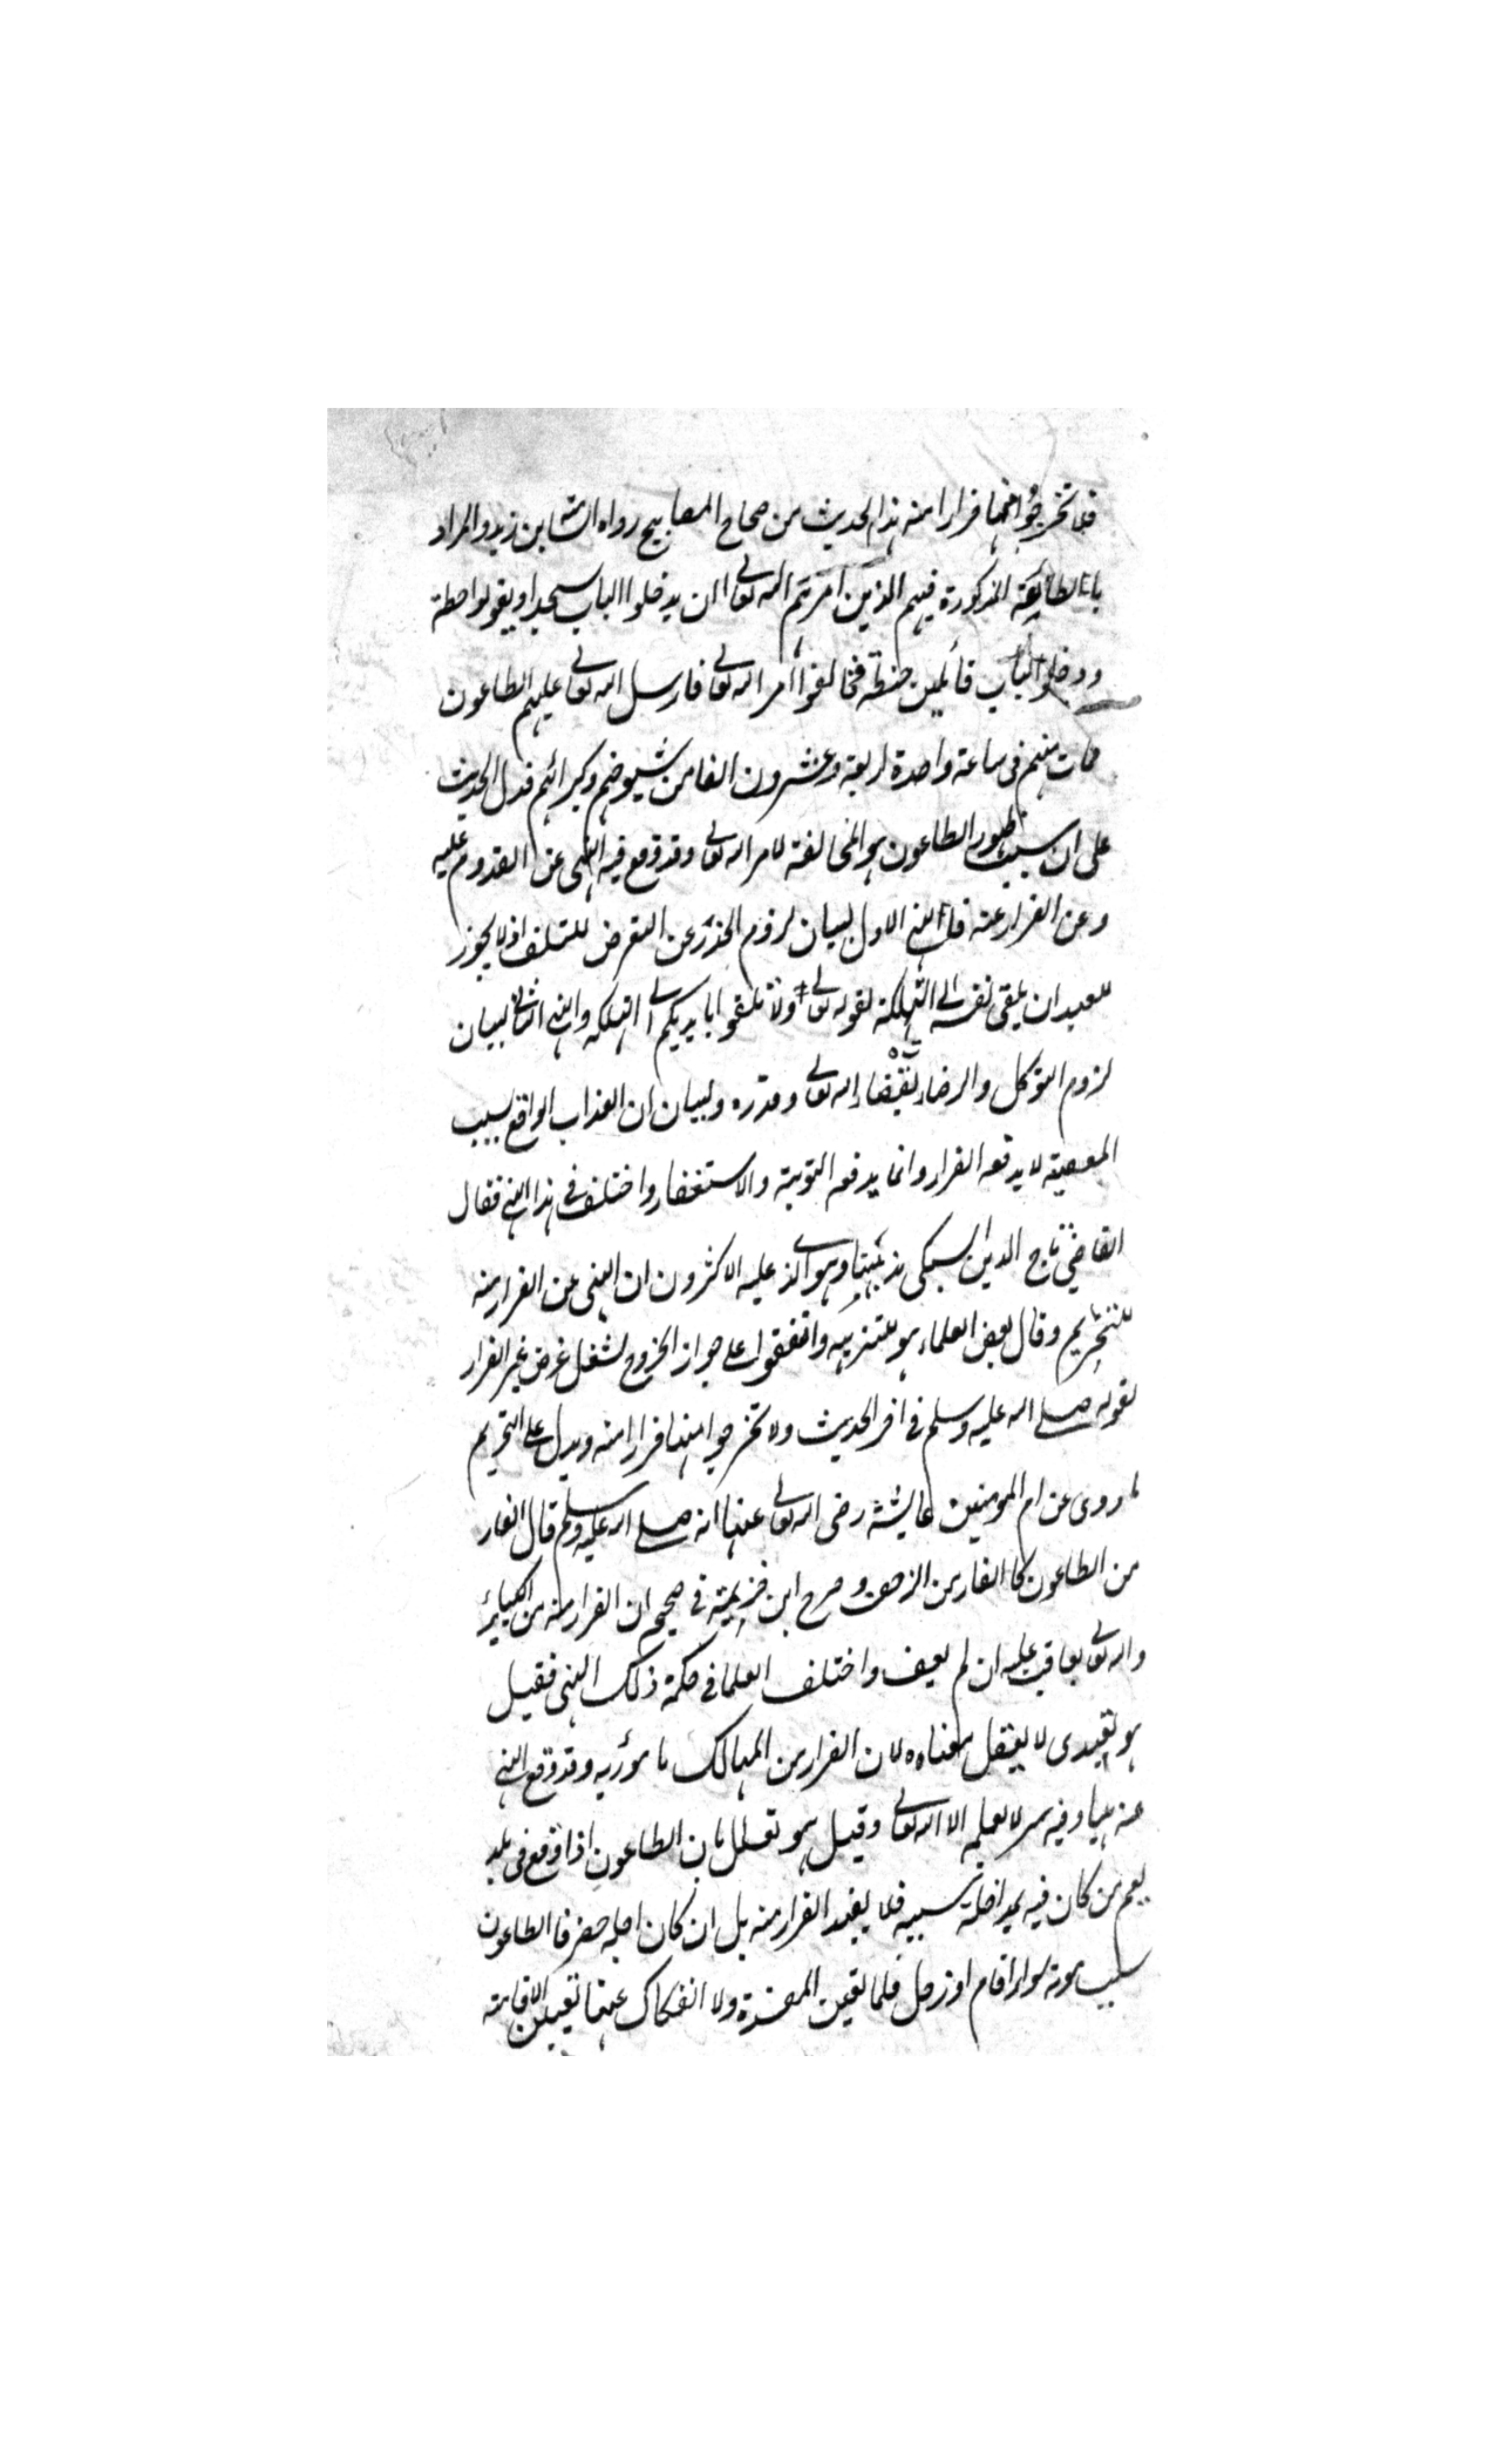 فلا تخرجوا منها فرارا منه هذا الحديث من صحاح المصابيح رواه اسامة ابن زيد والمراد
بالطائفة المذكورة فيهم الذين امرهم الله تعالى ان يدخلوا الباب سجدا ويقولوا حطة
ودخلوا الباب قائلين حنطة فخالفوا امر الله تعالى فارسل الله تعالى عليهم الطاعون
فمات منهم فى ساعة واحدة اربعة وعشرون الفا من شيوخهم وكبرائهم فدل الحديث
على ان سبب ظهور الطاعون هو المخالفة لامر الله تعالى وقد وقع فيه النهى عن القدوم عليه
وعن الفرار عنه فان النهى الاول لبيان لزوم الحذر عن التعرض للتلف اذ لا يجوز
للعبد ان يلقى نفسه الى التهلكة لقوله تعالى ولا تلقوا بايديكم الى التهلكه والنهى الثانى لبيان
لزوم التوكل والرضاء بقضاء الله تعالى وقدره ولبيان ان العذاب الواقع بسبب
المعصية لا يدفعه الفرار وانما يدفعه التوبة والاستغفار واختلف فى هذا النهى فقال
القاضى تاج الدين السبكى مذهبنا وهو الذى عليه الاكثرون ان النهى عن الفرار منه
للتحريم وقال بعض العلماء هو للتنزيه واتفقوا على جواز الخروج لشغل غرض غير الفرار
لقوله صلى الله عليه وسلم فى اخر الحديث ولا تخرجوا منها فرارا منه ويدل على التحريم
ما روى عن ام المومنين عايشة رضى الله تعالى عنها انه صلى الله عليه وسلم قال الفار
من الطاعون كالفار من الزحف وصرح ابن خزيمة فى صحيحه ان الفرار منه من الكبائر
والله تعالى يعاقب عليه ان لم يعف واختلف العلما فى حكمة ذلك النهى فقيل
هو تعبدى لا يعقل معناه لان الفرار من المهالك مامور به وقد وقع النهى
عنه هنا وفيه سر لا يعلمه الا الله تعالى وقيل هو تعلل بان الطاعون اذا وقع فى بلد
يعم من كان فيه بمداخلة سببه فلا يفيد الفرار منه بل ان كان اجله حضر فالطاعون
سبب موته سواء اقام او رحل فلما تعين المفسدة ولا انفكاك عنها تعين الاقامة